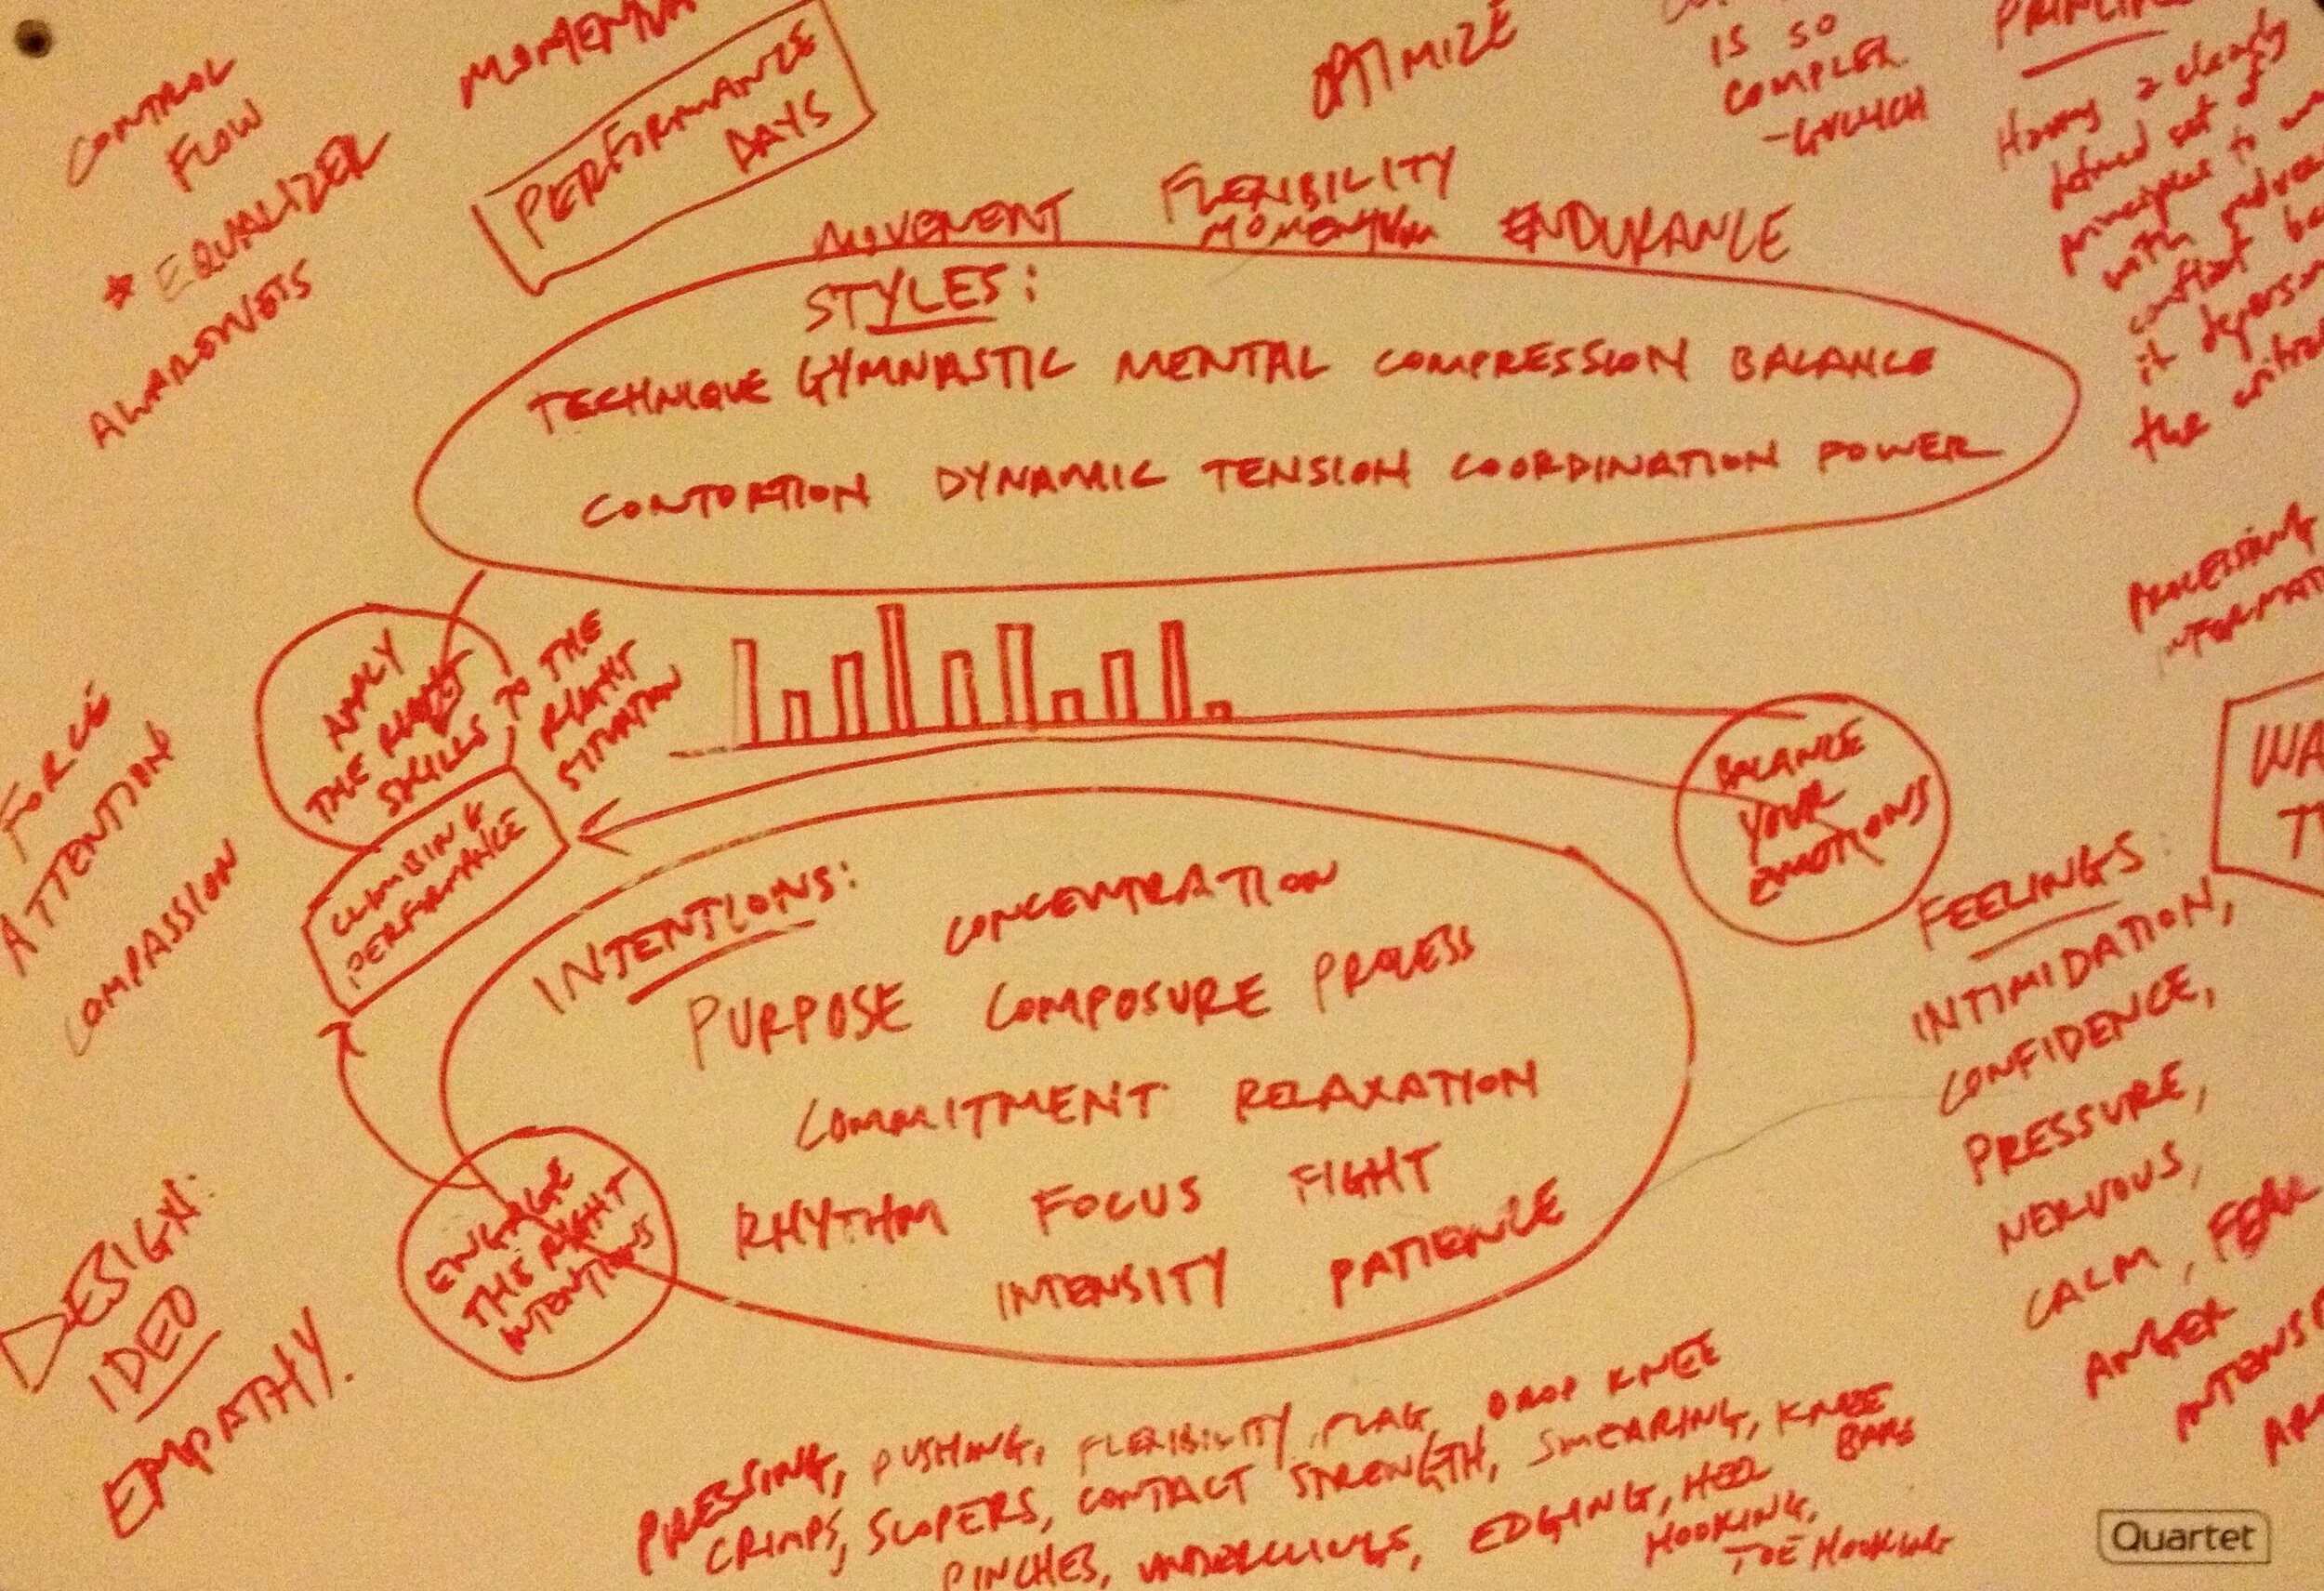 CONTROL
FLOW
* EQUALIZER
AWARENESS
PERFORMANCE
DAYS
OPTIMIZE
IS SO
COMPLEX
MOVEMENT
FLEXIBILITY
MOMENTUM
ENDURANCE
STYLES:
TECHNIQUE GYMNASTIC MENTAL COMPRESSION BALANCE
CONTORTION DYNAMIC TENSION COORDINATION POWER
Having a clearly
defined set of
principles to
with
conflict
it
the
PROCESSING
APPLY
THE RIGHT
SKILLS TO THE
RIGHT
SITUATION
CLIMBING
PERFORMANCE
FORCE
ATTENTION
COMPASSION
BALANCE
YOUR
EMOTIONS
INTENTIONS:
CONCENTRATION
PURPOSE COMPOSURE PROCESS
COMMITMENT RELAXATION
RHYTHM FOCUS FIGHT
INTENSITY PATIENCE
ENGAGE
THE RIGHT
INTENTIONS
FEELINGS:
INTIMIDATION,
CONFIDENCE,
PRESSURE,
NERVOUS,
CALM, FEAR
ANGER
DESIGN:
IDEO
EMPATHY.
PRESSING, PUSHING, FLEXIBILITY, FLAG, DROP KNEE
CRIMPS, SLOPERS, CONTACT STRENGTH, SMEARING, KNEE
BARS
PINCHES, UNDERCLINGS, EDGING, HEEL
HOOKING,
TOE HOOKING
Quartet